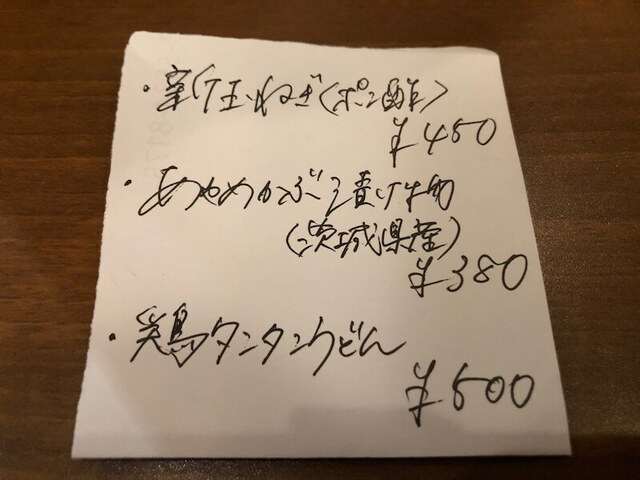 ・新玉ねぎ(ポン酢)
¥450
・あやめかぶ漬け物
(茨城県産)
¥380
・鶏タンタンうどん
¥500